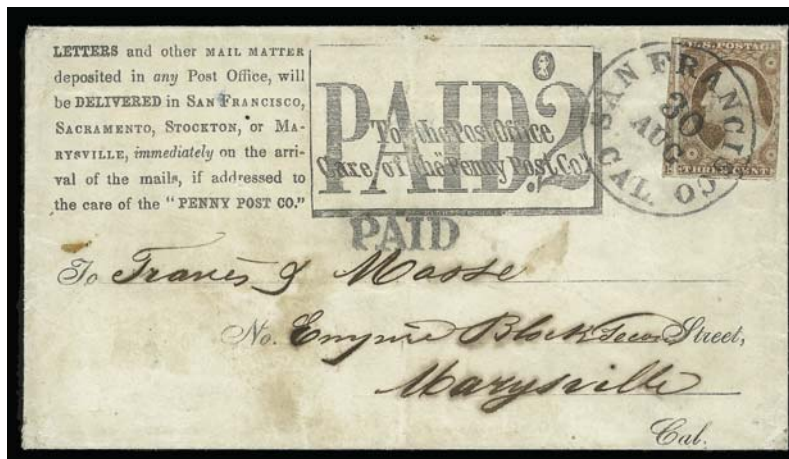 LETTERS and other MAIL MATTER
deposited in any Post Office, will
be DELIVERED in SAN FRANCISCO,
SACRAMENTO, STOCKTON, OR MA-
RYSVILLE, immediately on the arri-
val of the mails, if addressed to
the care of the "PENNY POST CO."
PAID.2
To the Post Office
Care of the "Penny Post Co."
PAID
SAN FRANCISCO
30
AUG
CAL.
U.S. POSTAGE
THREE CENTS
To Travis & Masse
No. Empire Block Street,
Marysville
Cal.